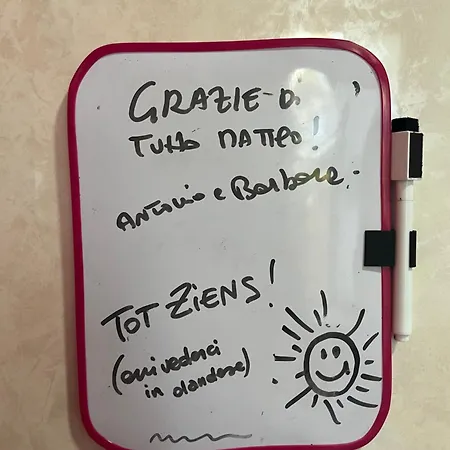 GRAZIE DI
TUTTO MATTEO!
ANTONIO e Barbara.
TOT ZIENS!
(arrivederci
in olandese)